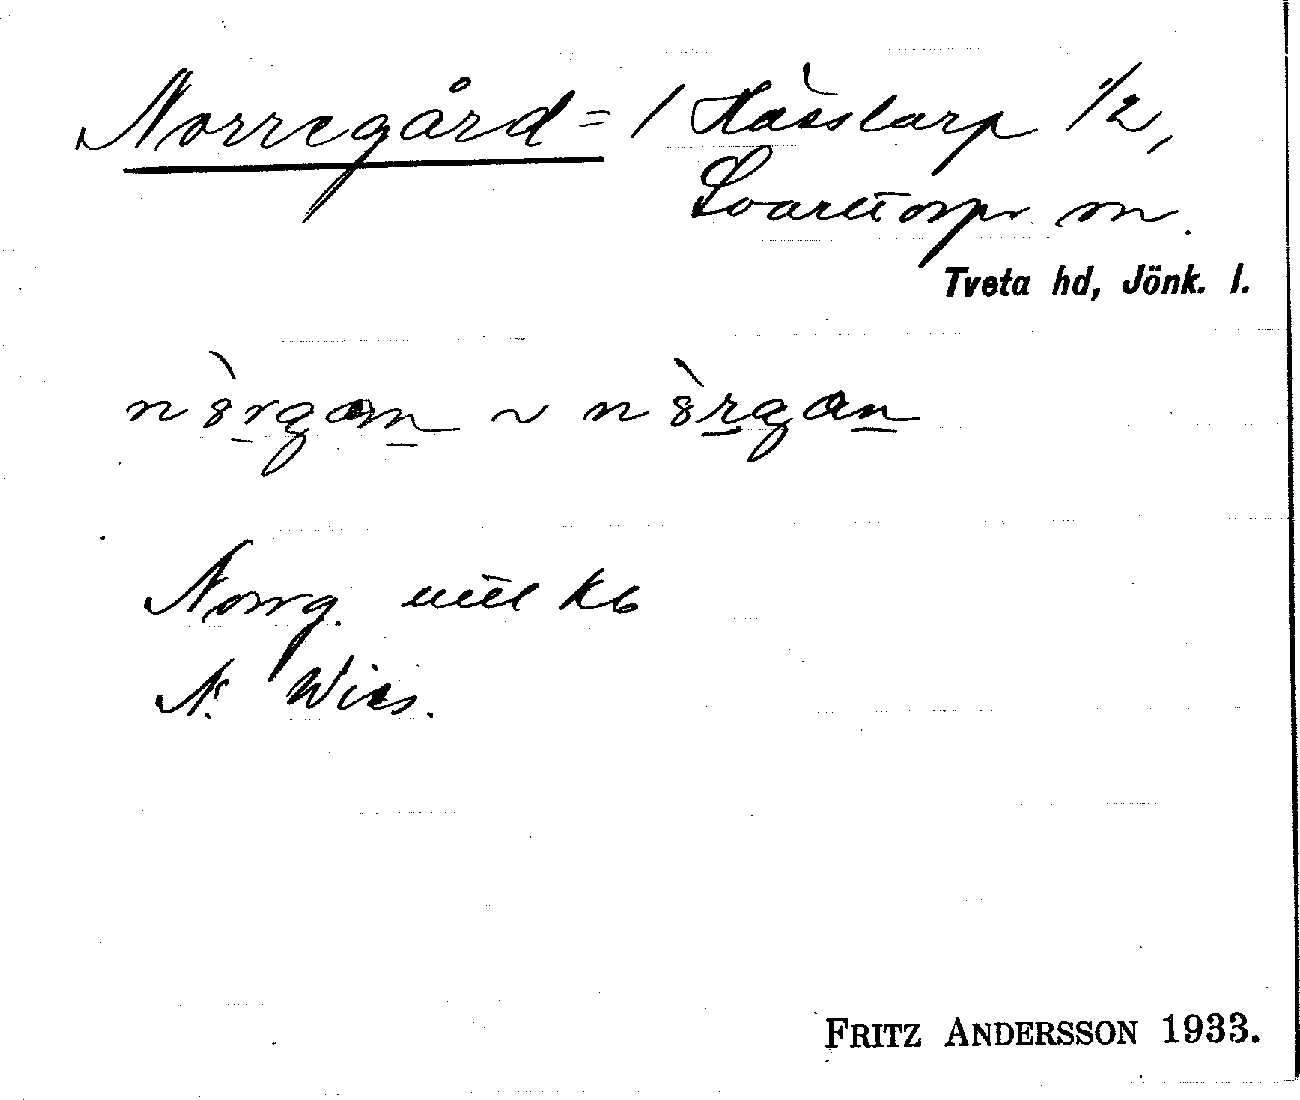 Norregård = / Hässlarp 1/2,
Svarttorps sn.
Tveta hd, Jönk. l.
n8̀rgan ~ n8̀rgan
Norrg.
N. Wies.
FRITZ ANDERSSON 1933.